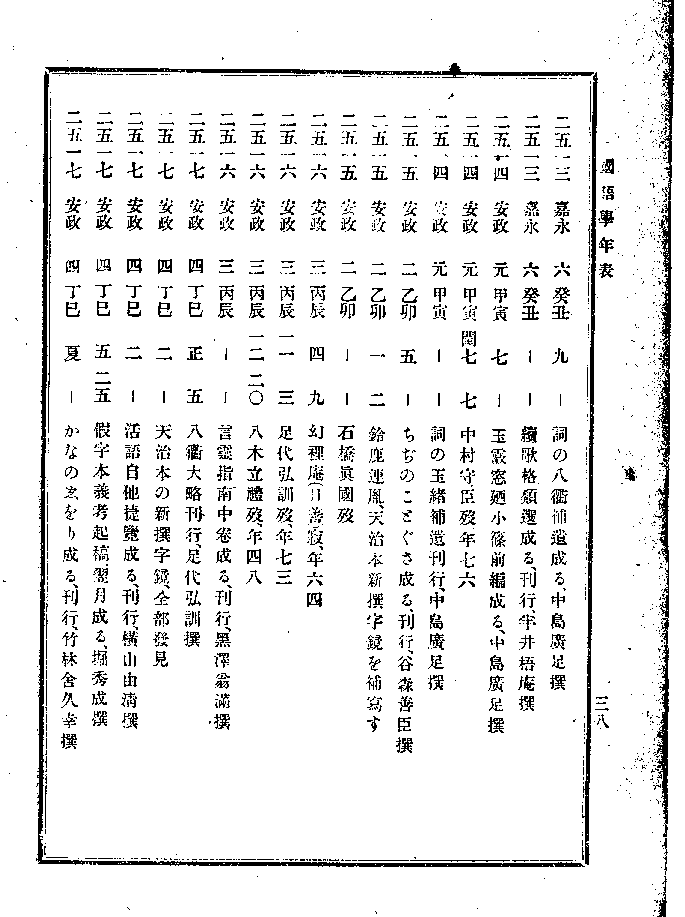 國語學年表
三八
二五一三 嘉永 六 癸丑 九 ー 詞の八衢補遺成る、中島廣足撰
二五一三 嘉永 六 癸丑 ー ー 續歌格類選成る、刊行、半井梧庵撰
二五一四 安政 元 甲寅 七 ー 玉霰窓廼小篠前編成る、中島廣足撰
二五一四 安政 元 甲寅 閏七 七 中村守臣歿、年七六
二五一四 安政 元 甲寅 ー ー 詞の玉緒補遺刊行、中島廣足撰
二五一五 安政 二 乙卯 五 ー ちぢのことぐさ成る、刊行、谷森善臣撰
二五一五 安政 二 乙卯 一 二 鈴鹿連胤、天治本新撰字鏡を補寫す
二五一五 安政 二 乙卯 ー ー 石橋眞國歿
二五一六 安政 三 丙辰 四 九 幻裡庵(日善寂、年六四
二五一六 安政 三 丙辰 一一 三 足代弘訓歿、年七三
二五一六 安政 三 丙辰 一二 二〇 八木立禮歿、年四八
二五一六 安政 三 丙辰 ー ー 言靈指南中卷成る、刊行、黑澤翁滿撰
二五一七 安政 四 丁巳 正 五 八衢大略刊行、足代弘訓撰
二五一七 安政 四 丁巳 二 ー 天治本の新撰字鏡、全部發見
二五一七 安政 四 丁巳 二 ー 活語自他捷覽成る、刊行、横山由淸撰
二五一七 安政 四 丁巳 五 二五 假字本義考起稿、翌月成る、堀秀成撰
二五一七 安政 四 丁巳 夏 ー かなのしをり成る、刊行、竹林舍久幸撰